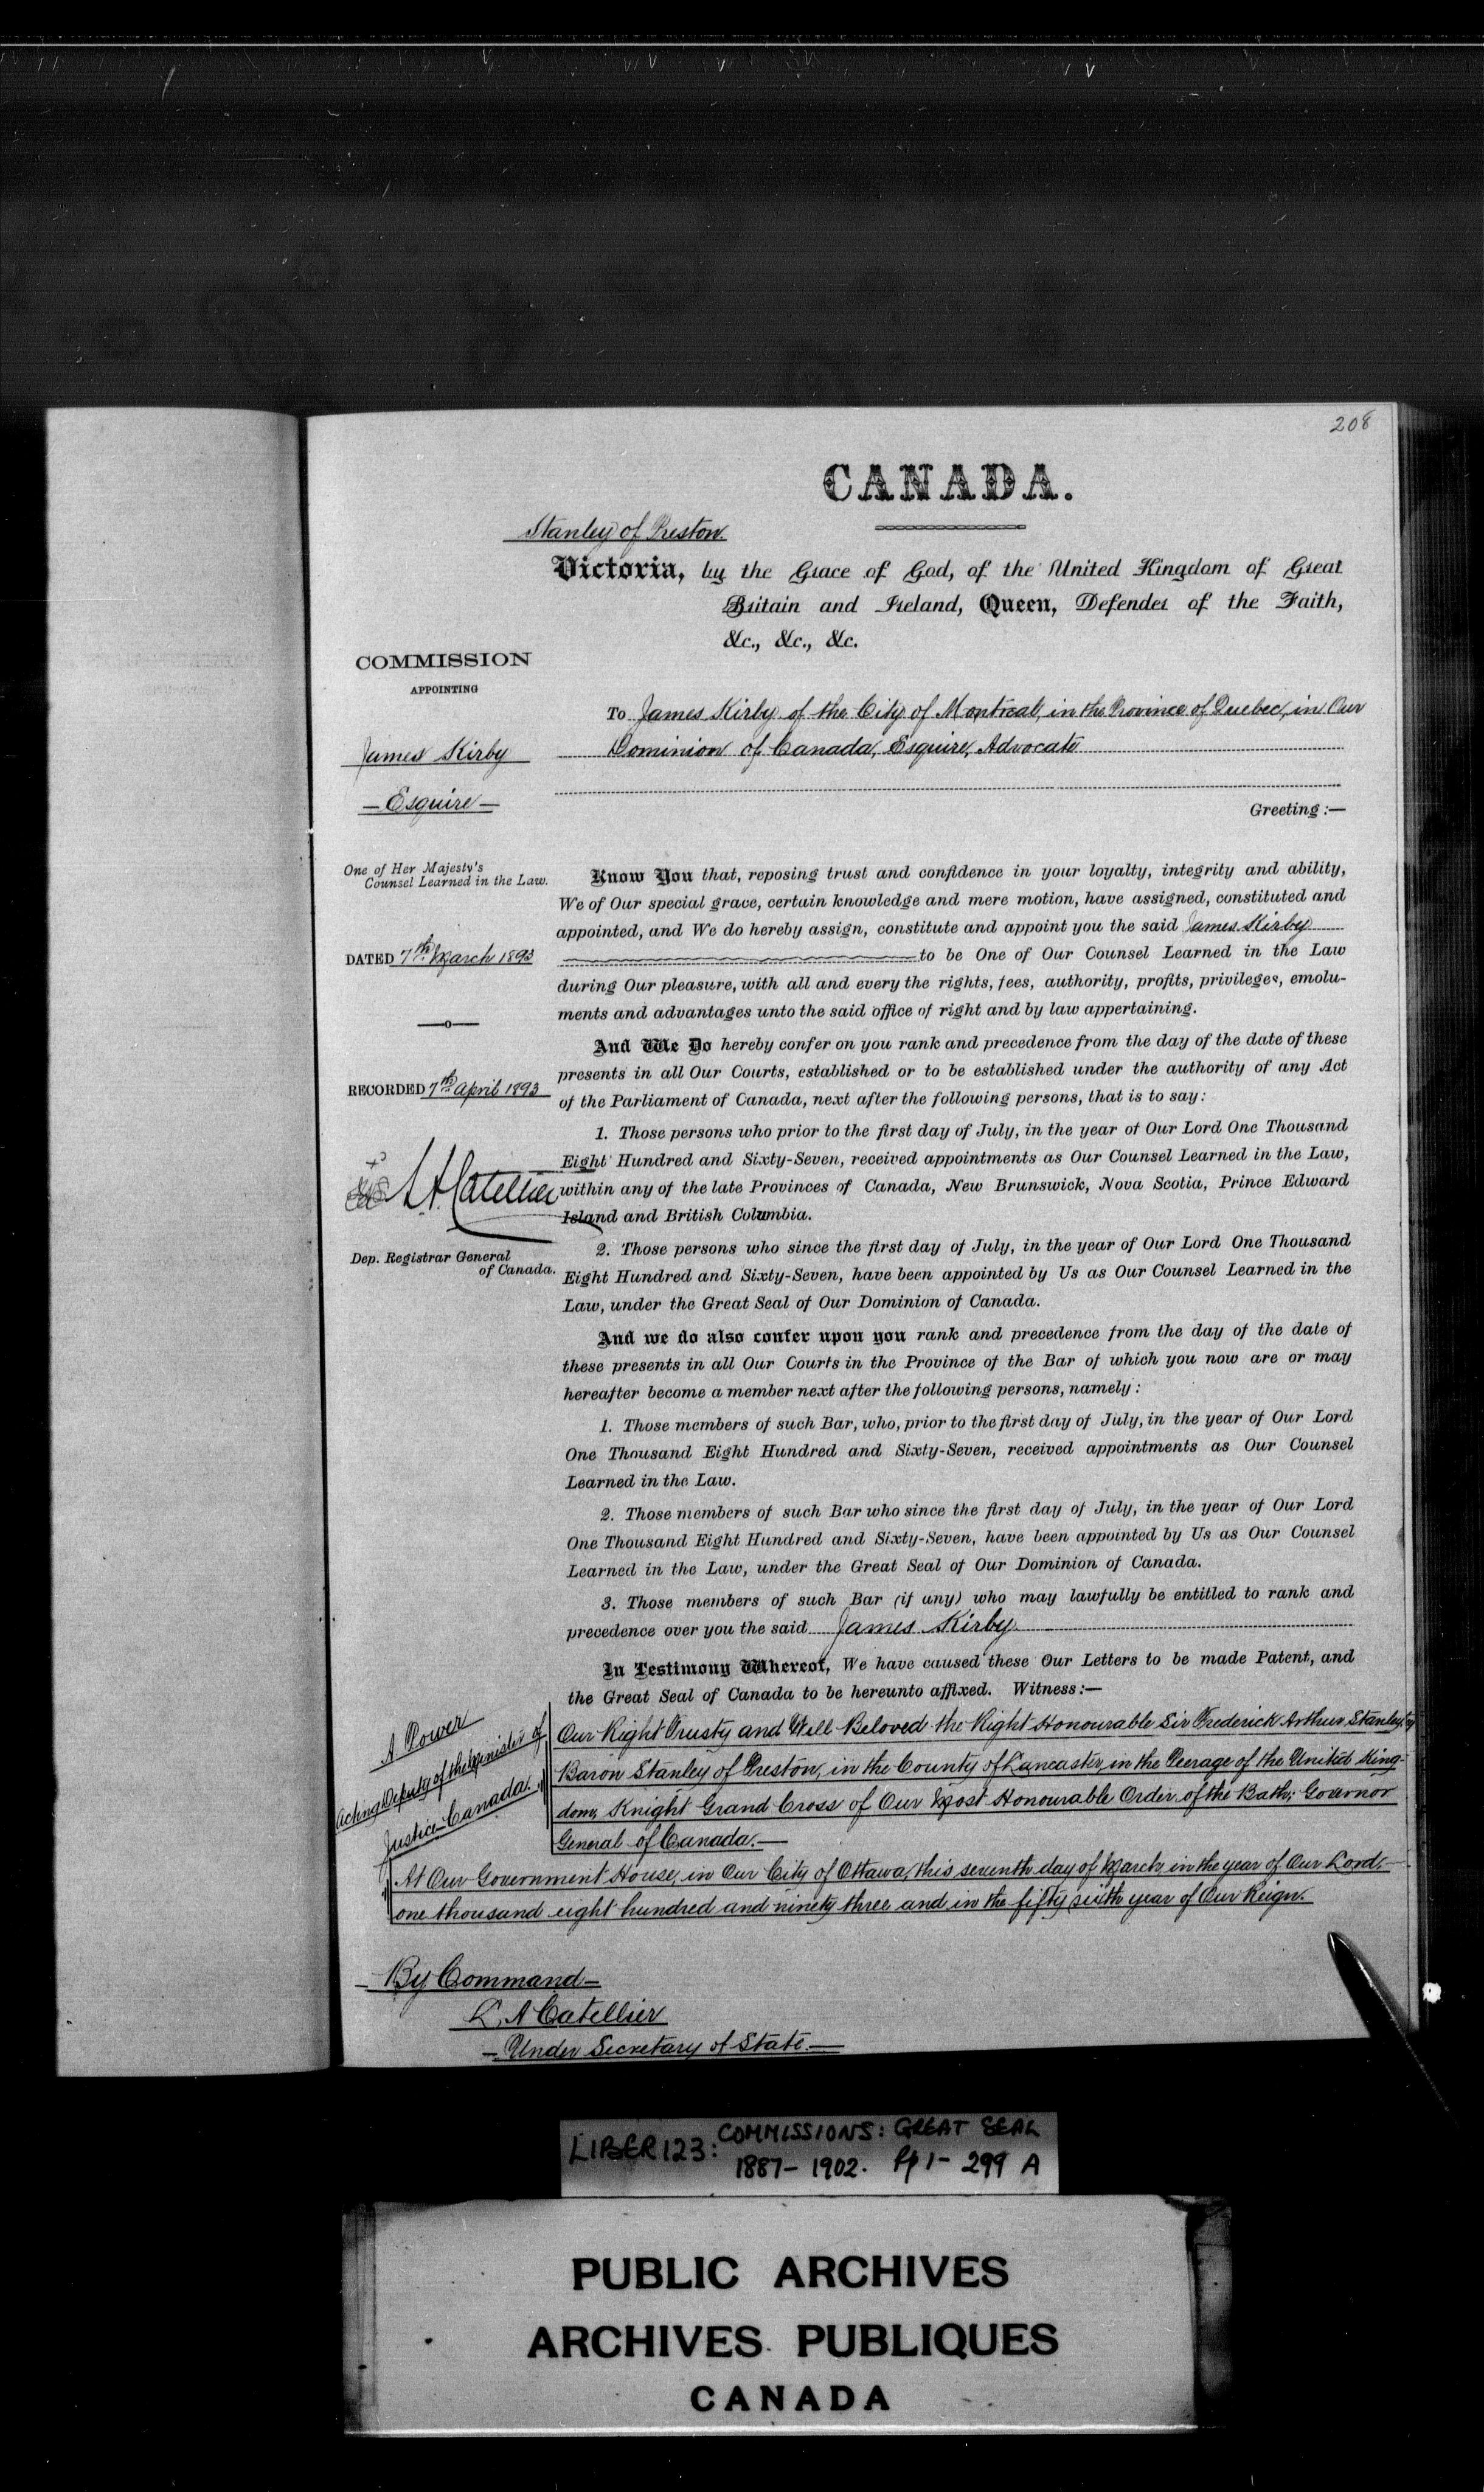 208
CANADA.
Stanley of Preston.
Victoria, by the Grace of God, of the United Kingdom of Great
Britain and Ireland, Queen, Defender of the Faith,
&c., &c., &c.
COMMISSION
APPOINTING
James Kirby
— Esquire —
One of Her Majesty's
Counsel Learned in the Law.
DATED 7th March 1893
—o—
RECORDED 7th April 1893
L. A. Catellier
Dep. Registrar General
of Canada.
To James Kirby of the City of Montreal, in the Province of Quebec, in Our
Dominion of Canada, Esquire, Advocate
Greeting :—
Know You that, reposing trust and confidence in your loyalty, integrity and ability,
We of Our special grace, certain knowledge and mere motion, have assigned, constituted and
appointed, and We do hereby assign, constitute and appoint you the said James Kirby
to be One of Our Counsel Learned in the Law
during Our pleasure, with all and every the rights, fees, authority, profits, privileges, emolu-
ments and advantages unto the said office of right and by law appertaining.
And We Do hereby confer on you rank and precedence from the day of the date of these
presents in all Our Courts, established or to be established under the authority of any Act
of the Parliament of Canada, next after the following persons, that is to say:
1. Those persons who prior to the first day of July, in the year of Our Lord One Thousand
Eight Hundred and Sixty-Seven, received appointments as Our Counsel Learned in the Law,
within any of the late Provinces of Canada, New Brunswick, Nova Scotia, Prince Edward
Island and British Columbia.
2. Those persons who since the first day of July, in the year of Our Lord One Thousand
Eight Hundred and Sixty-Seven, have been appointed by Us as Our Counsel Learned in the
Law, under the Great Seal of Our Dominion of Canada.
And we do also confer upon you rank and precedence from the day of the date of
these presents in all Our Courts in the Province of the Bar of which you now are or may
hereafter become a member next after the following persons, namely :
1. Those members of such Bar, who, prior to the first day of July, in the year of Our Lord
One Thousand Eight Hundred and Sixty-Seven, received appointments as Our Counsel
Learned in the Law.
2. Those members of such Bar who since the first day of July, in the year of Our Lord
One Thousand Eight Hundred and Sixty-Seven, have been appointed by Us as Our Counsel
Learned in the Law, under the Great Seal of Our Dominion of Canada.
3. Those members of such Bar (if any) who may lawfully be entitled to rank and
precedence over you the said James Kirby
In Testimony Whereof, We have caused these Our Letters to be made Patent, and
the Great Seal of Canada to be hereunto affixed. Witness:—
A Power
Acting Deputy of the Minister of
Justice—Canada.
Our Right Trusty and Well Beloved the Right Honourable Sir Frederick Arthur Stanley,
Baron Stanley of Preston, in the County of Lancaster, in the Peerage of the United King-
dom, Knight Grand Cross of Our Most Honourable Order of the Bath; Governor
General of Canada.—
At Our Government House, in Our City of Ottawa, this seventh day of March in the year of Our Lord,
one thousand eight hundred and ninety three and in the fifty sixth year of Our Reign.
— By Command —
L. A Catellier
— Under Secretary of State.—
LIBER 123: COMMISSIONS: GREAT SEAL
1887 – 1902. Pp 1 – 299 A
PUBLIC ARCHIVES
ARCHIVES PUBLIQUES
CANADA